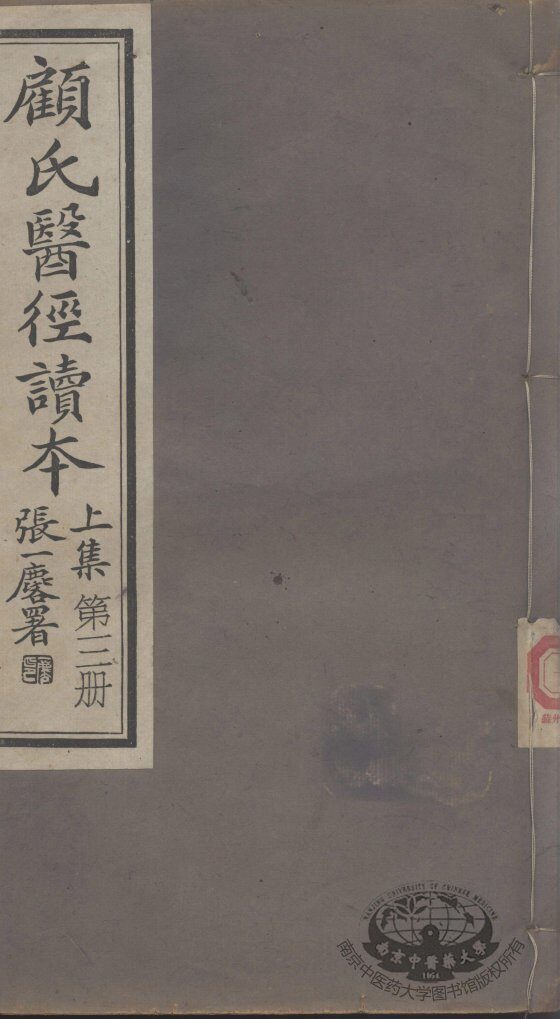 顧氏醫徑讀本
上集 第三册
張一麐署
蘇州
NANJING UNIVERSITY OF CHINESE MEDICINE
南京中醫藥大學
1954
南京中医药大学图书馆版权所有